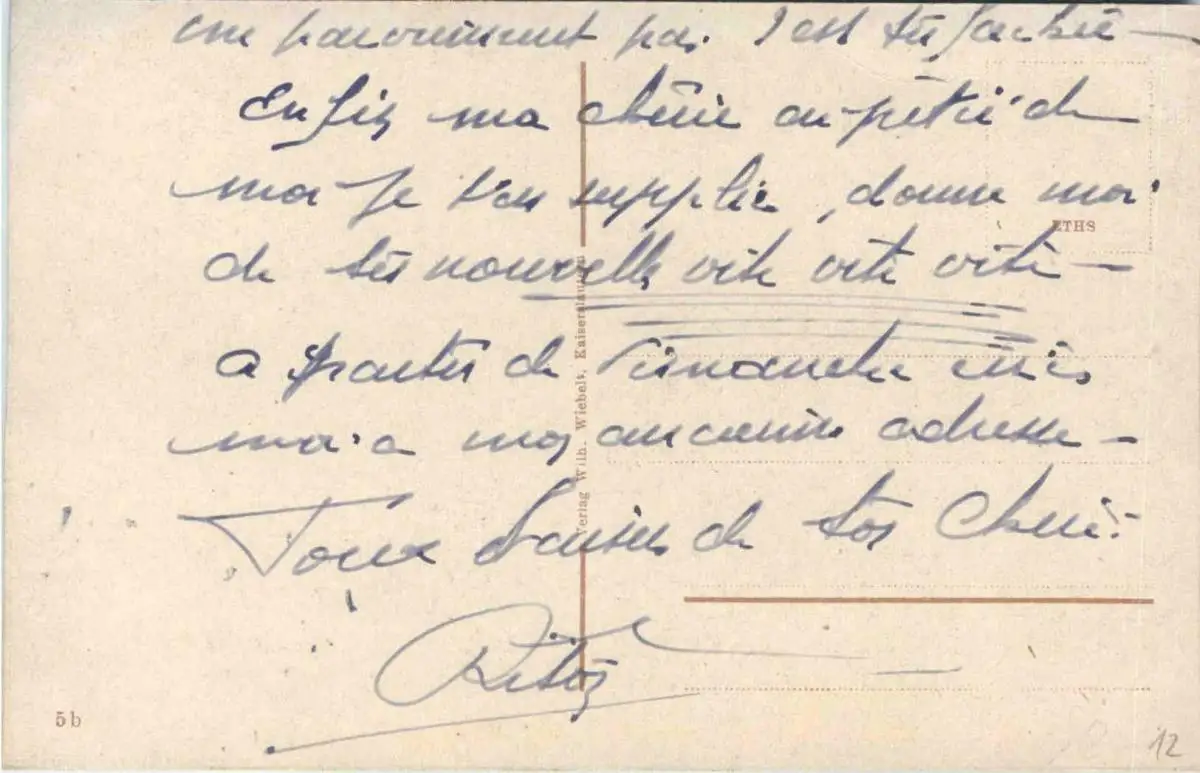 pas. C'est très fâcheux —
Enfin ma chérie ai pitié de
moi je t'en supplie, donne moi
de tes nouvelles vite vite vite —
a partir de Dimanche écris
moi a mon ancienne adresse —
Doux baisers de ton Chéri
ETHS
Verlag Wilh. Wiebelt, Kaiserslautern
5b
12